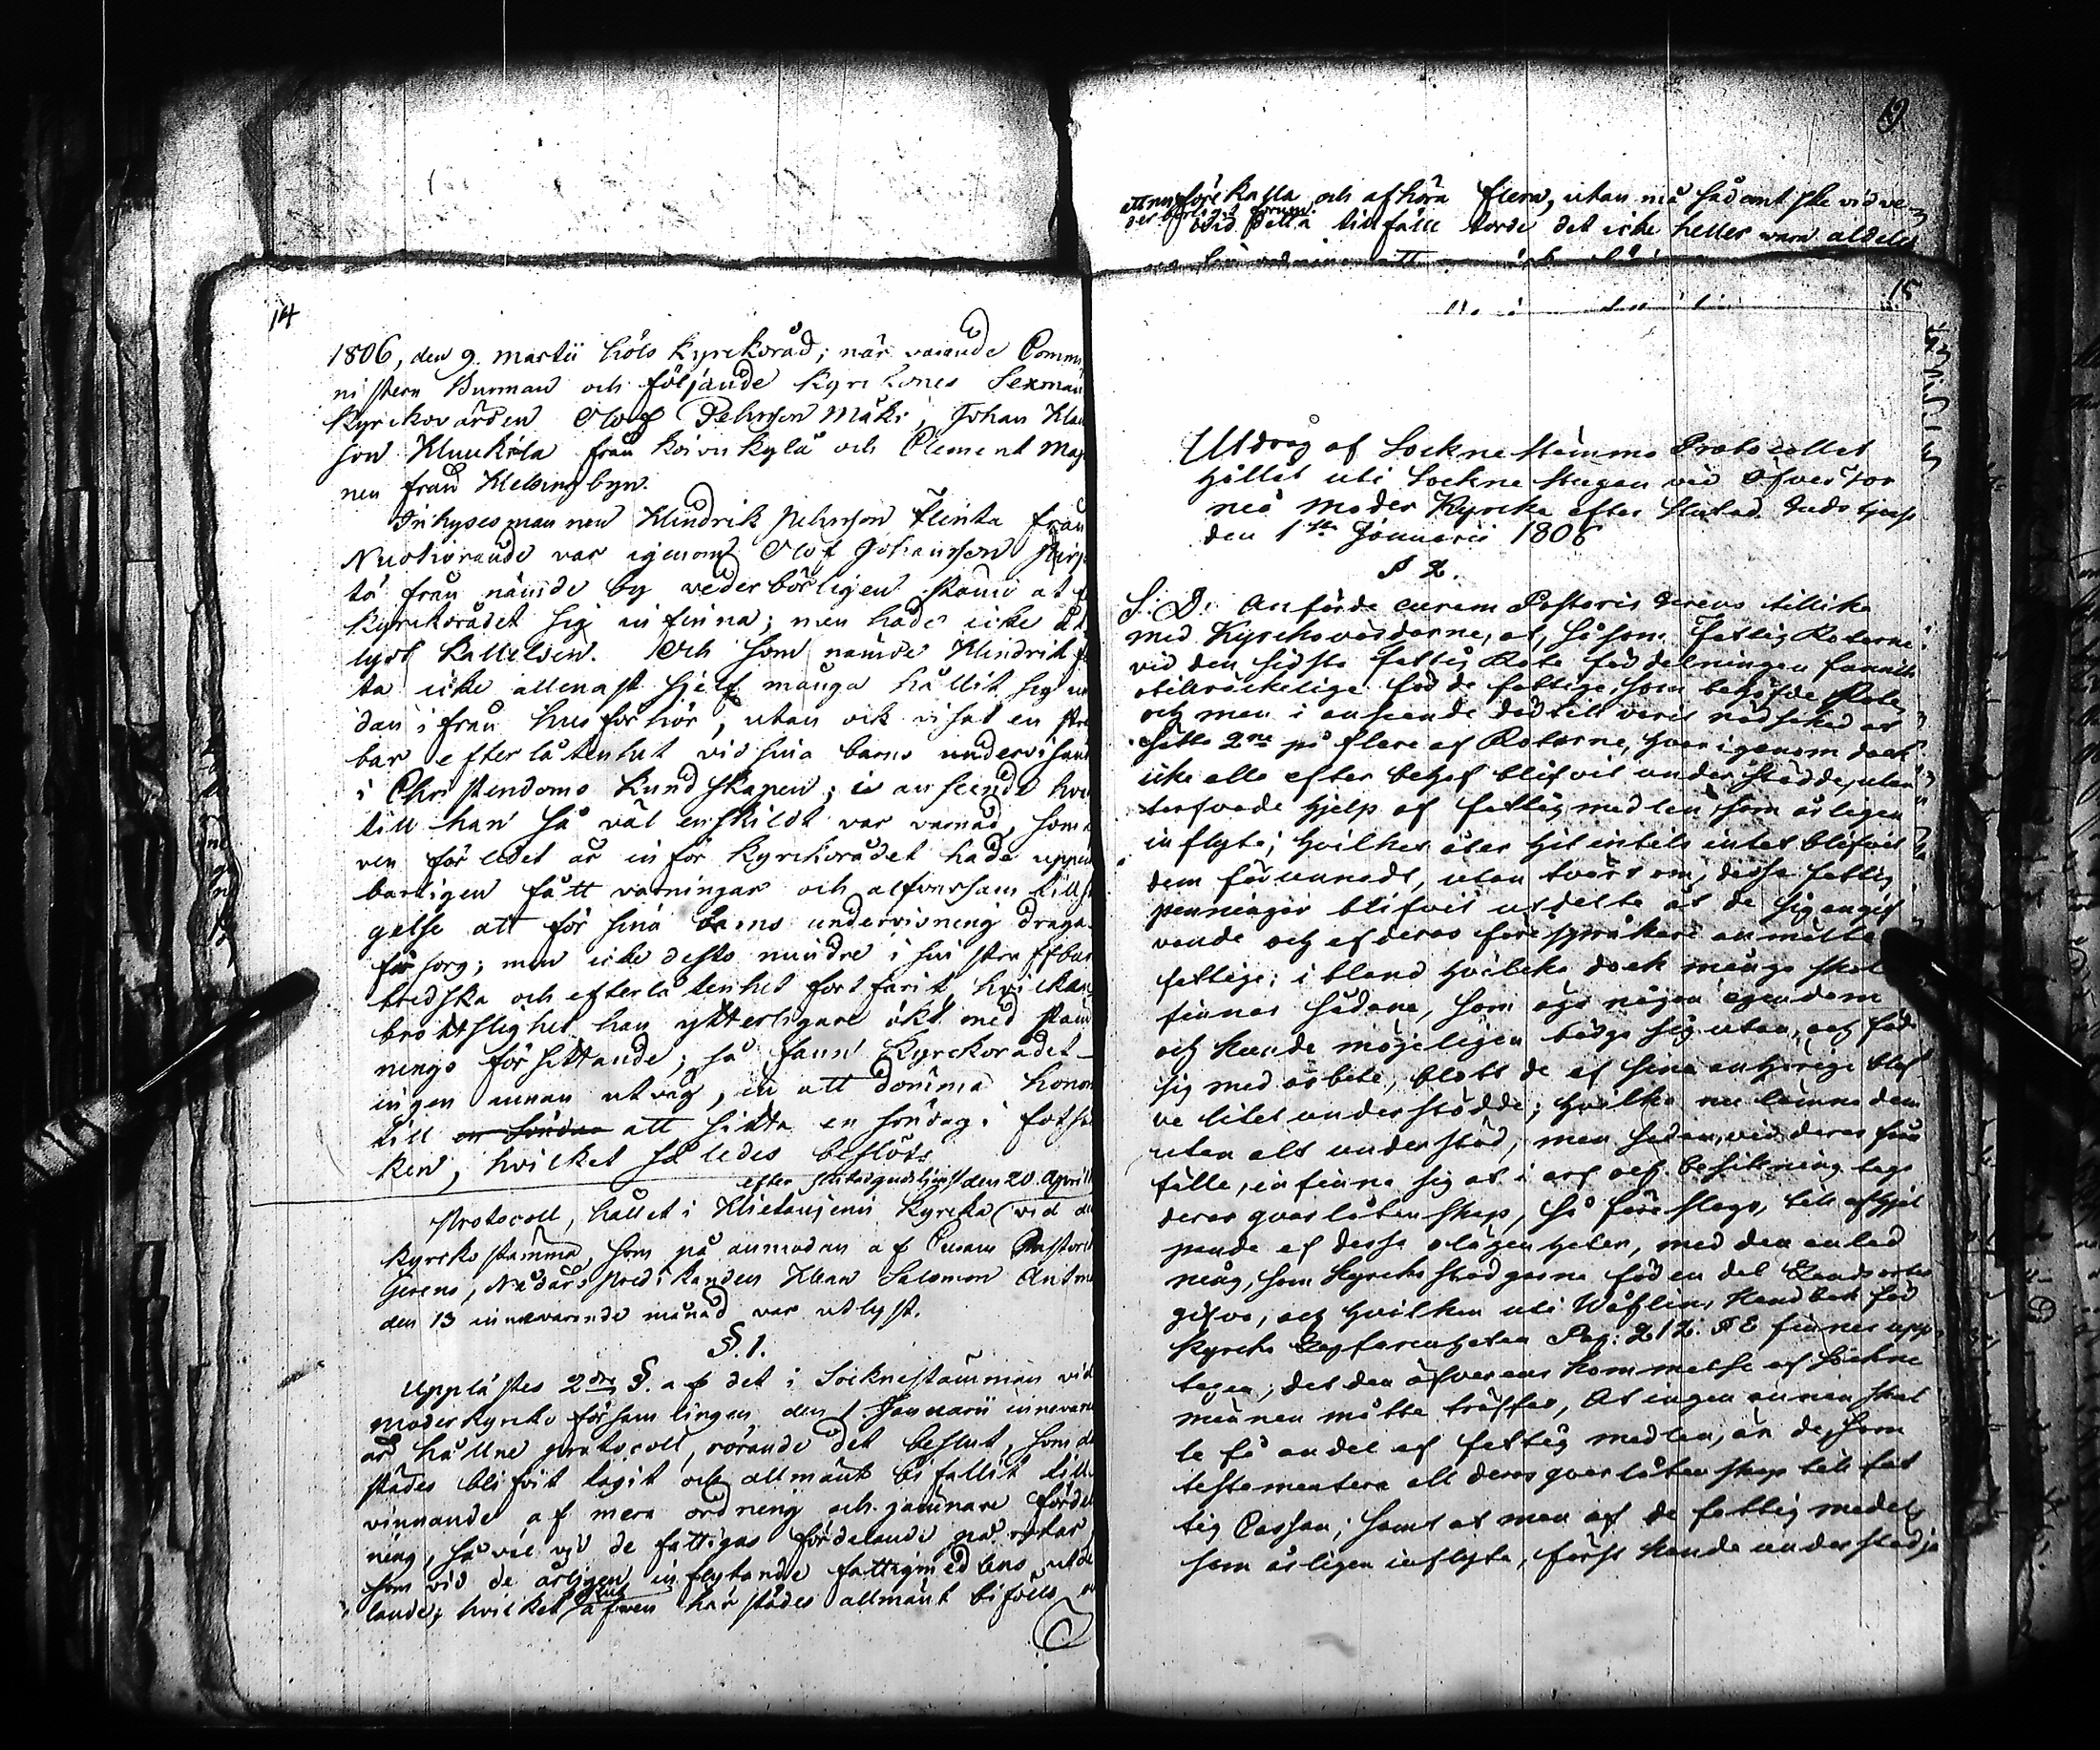 14
1806, den 9. martii höls kyrckoråd; när varande Commi
nistern Burman och följande kyrckones Sexmän
kyrckovärden Olof Pehrsson Mäki, Johan Kla
son Kluukila från Koivukylä och Clement Mag
nen från Helsingbyn.
Inhysesmannen Hindrik Pehrsson Flinka från
Nuotioranda var igenom Olof Johansson
tö från nämde by vederbörligen stämd at
kyrckorådet sig infinna; men hade icke
lydt kallelsen. Och som nämde Hindrik
ta icke allenast sjelf många hållit sig un
dan ifrån husförhör, utan ock visat en
bar efterlåtenhet vid sina barns undervisan
i Christendoms kundskapen; i anseende hvar
till han så väl enskildt var varnad, som
ven förledet år inför kyrckorådet hade uppen
barligen fått varningar och alfvarsam tillsä
gelse att för sina barns undervisning draga
försorg; men icke desto mindre i sin straffbar
tredska och efterlåtenhet fortfarit, hvilken
brottslighet han ytterligare ökt med stäm
nings försittande; så fann kyrckorådet
ingen annan utväg, än att dömma honom
till en söndag att sitta en söndag i fotstoc
ken, hvilket således beslöts.
efter slutad gudstjenst den 20. April
Protocoll, hållet i Hietaniemi kyrcka vid den
kyrcko stämma, som på anmodan af Curam Pastoris
Gerens, Nådårs predikanden Herr Salomon Antm
den 13 innevarande månad var utlyst.
§. 1.
Upplästes 2dra §. af det i Socknestämman vid
moderkyrcko församlingen den 1. Januarii innevaran
år hållne protocoll, rörande det beslut, som der
städes blifvit tagit och allmänt bifallit till
vinnande af mera ordning och jämnare fördel
ning, så väl vid de fattigas fördelande på rotar
som vid de årligen inflytande fattigmedlens utde
lande; hvilket beslut äfwen här städes allmänt bifölls
19
förekalla och afhöra flera, utan må sådant ske vid we
derbörligt forum.
vid detta tillfälle torde det icke heller wara aldeles
15
Utdrag af Sockne Stämmo Protocollet
hållit uti Sockne Stugan vid Öfver Tor
neå Moder Kyrcka efter Slutad Gudstjenst
den 1sta Januarii 1806
§ 2.
S. D. Anförde Curam Pastoris Gerens tillika
med Kyrckovärdarne, at, såsom Fattig Roterne
vid den sidsta fattig Rote fördelningen funnits
otilräckelige för de fattige, som behöfde Rote,
och man i anseende dertill varit nödsakad at
sätta 2ne på flere af Roterne, hvarigenom dock
icke alla efter behof blifvit understödde, utan
tarfvade hjelp af fattig medlen som årligen
inflyta; hvilket åter hit intils intet blifvit
dem förunnadt, utan tvärt om, desse fattig
penningar blifvit utdelte åt de sig angif
vande och af deras förespråkare anmälte
fattige; i bland hvilcka dock många skal
finnas sådane, som äga någon egendom
och kunde möjeligen berga sig utan, och föda
sig med arbete, blott de af sina anhörige blef
ve litet understödde; hvilka nu lämna dem
utan alt understöd, men sedan, ved deras från
fälle, infinna sig at i arf och besittning taga
deras qvarlåtenskap, så föreslogs, till afhjel
pande af dessa olägenheter, med den anled
ning, som Kyrcko stadgarna för en del Landsorter
gifva, och hvilken uti Wåhlins Handbok för
Kyrcko Lagfarenheten Pag: 212. § E finnes upp
tagen; det den öfverens kommelse af Sockne
männen måtte träffas, At ingen annan skul
le få andel af fattig medlen, än de, som
testamentera all deras qvarlåtenskap till fat
tig Cassan; samt at man af de fattig medel,
som årligen inflyta, först kunde understödja